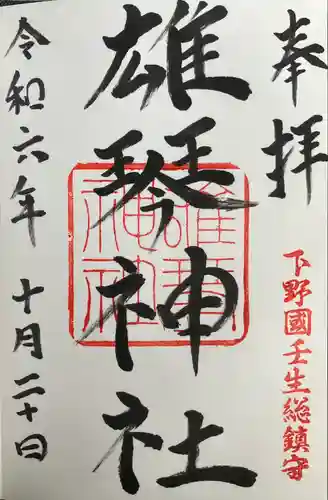 奉拝
下野國壬生総鎮守
雄琴神社
雄琴神社
令和六年 十月二十日